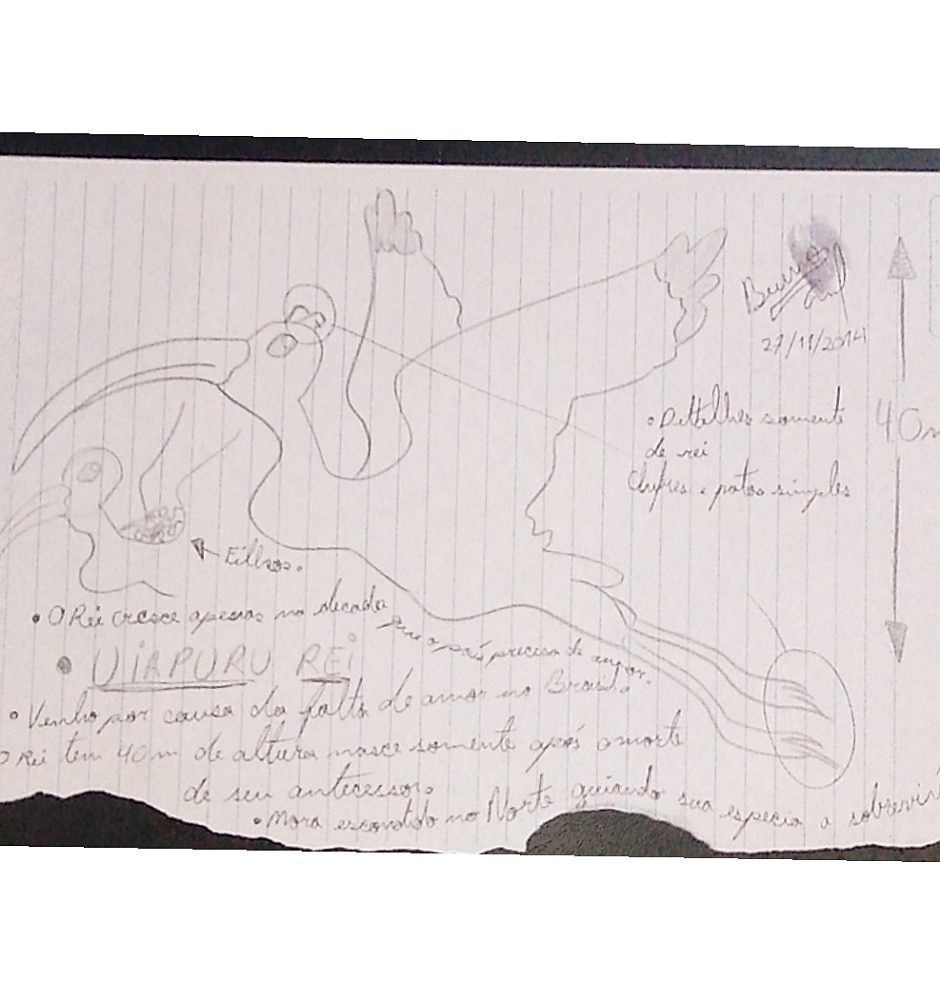 27/11/2014
40m
• Dettelhes somente
de rei
Chifres e patas simples
Eilhos.
• O Rei cresce apenas na decada
que o país precisa de amor.
• UiAPURU REi
• Venho por causa da falta de amor no Brasil.
O Rei tem 40m de altura nasce somente após a morte
de seu antecessor.
• Mora escondido no Norte guiando sua especia a sobreviv